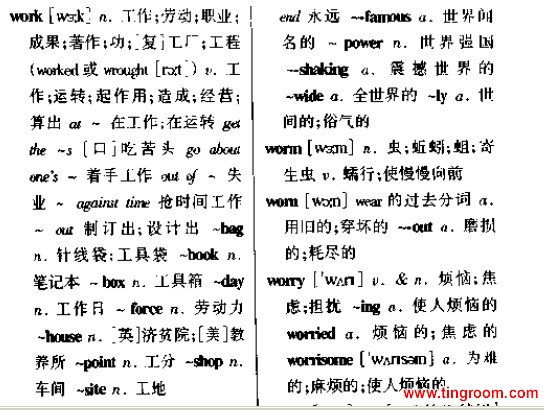 work [wə:k] n. 工作;劳动;职业;
成果;著作;功;[复]工厂;工程
(worked 或 wrought [rɔ:t]) v. 工
作;运转;起作用;造成;经营;
算出 at ~ 在工作;在运转 get
the ~s [口]吃苦头 go about
one's ~ 着手工作 out of ~ 失
业 ~ against time 抢时间工作
~ out 制订出;设计出 ~bag
n. 针线袋;工具袋 ~book n.
笔记本 ~box n. 工具箱 ~day
n. 工作日 ~ force n. 劳动力
~house n. [英]济贫院;[美]教
养所 ~point n. 工分 ~shop n.
车间 ~site n. 工地
end 永远 ~-famous a. 世界闻
名的 ~ power n. 世界强国
~-shaking a. 震撼世界的
~wide a. 全世界的 ~ly a. 世
间的;俗气的
worm [wə:m] n. 虫;蚯蚓;蛆;寄
生虫 v. 蠕行;使慢慢向前
worn [wɔ:n] wear 的过去分词 a.
用旧的;穿坏的 ~-out a. 磨损
的;耗尽的
worry ['wʌrɪ] v. & n. 烦恼;焦
虑;担扰 ~ing a. 使人烦恼的
worried a. 烦恼的;焦虑的
worrisome ['wʌrɪsəm] a. 为难
的;麻烦的;使人烦恼的
www.tingroom.com